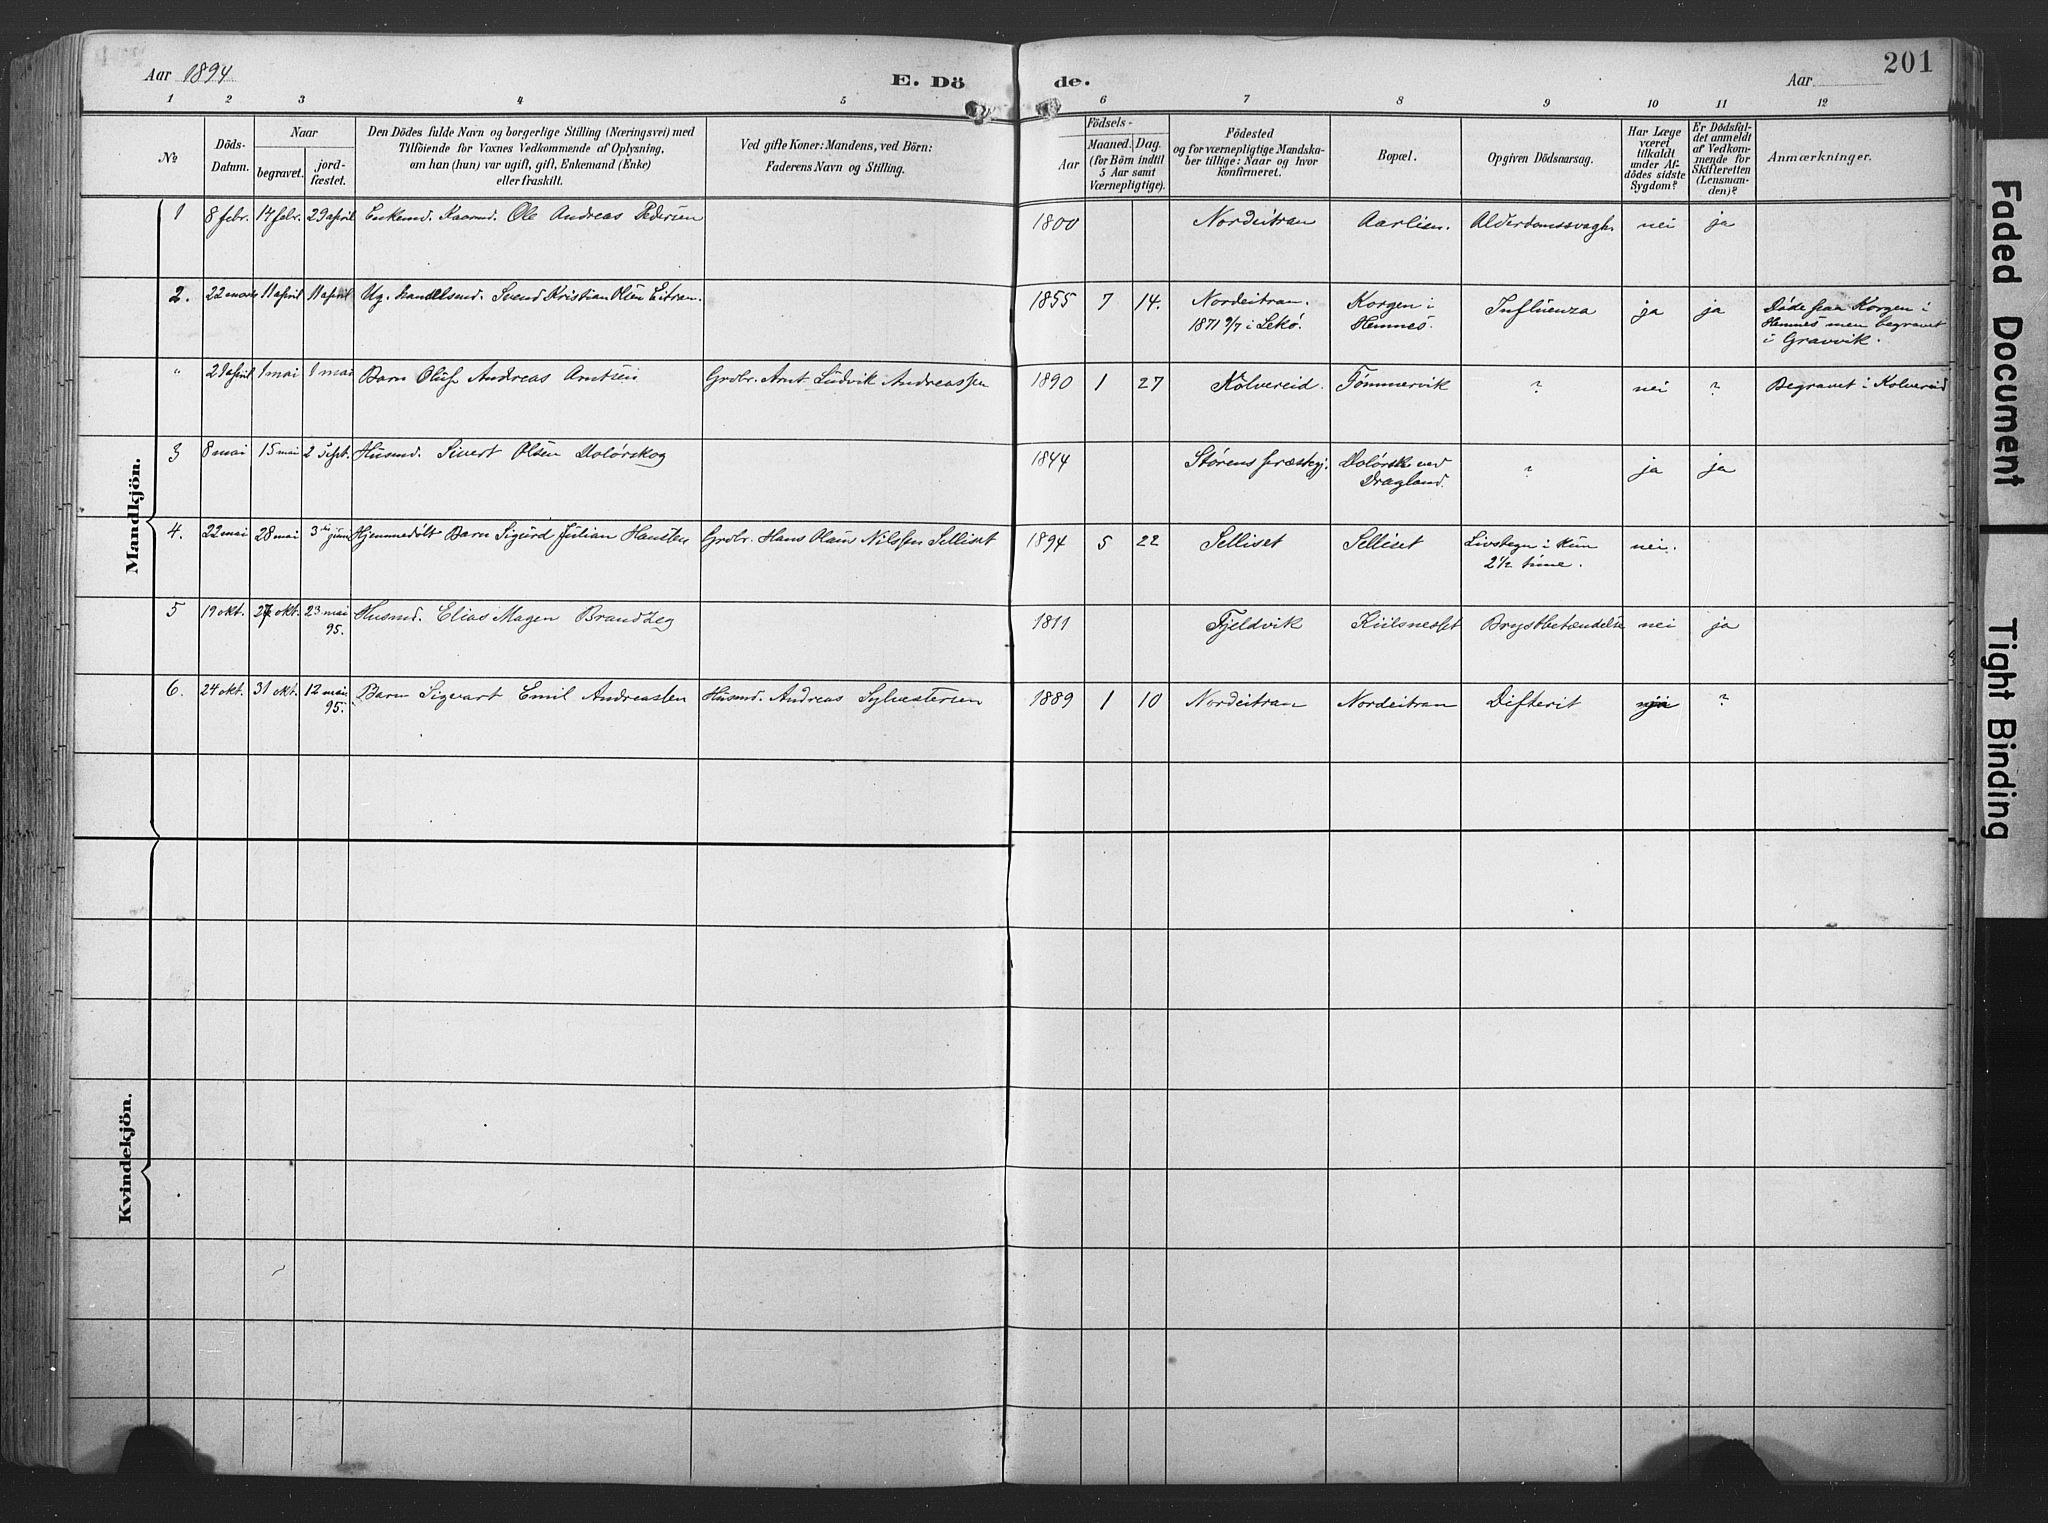 Aar 1894
E. Dö
de.
Aar
201
1 2 3 4 5 6 7 8 9 10 11 12
No
Döds-
Datum.
Naar
begravet.
jord-
fæstet.
Den Dödes fulde Navn og borgerlige Stilling (Næringsvei) med
Tilföiende for Voxnes Vedkommende af Oplysning,
om han (hun) var ugift, gift, Enkemand (Enke)
eller fraskilt.
Ved gifte Koner: Mandens, ved Börn:
Faderens Navn og Stilling.
Födsels-
Aar
Maaned. Dag.
(for Börn indtil
5 Aar samt
Værnepligtige).
Födested
og for værnepligtige Mandska-
ber tillige: Naar og hvor
konfirmeret.
Bopæl.
Opgiven Dödsaarsag.
Har Læge
været
tilkaldt
under Af-
dödes sidste
Sygdom?
Er Dödsfal-
det anmeldt
af Vedkom-
mende for
Skifteretten
(Lensman-
den)?
Anmærkninger.
Mandkjön.
1 8 febr. 14 febr. 29 april Enkemd. Kaarmd. Ole Andreas Pedersen 1800 Nordeitran Aarlien. Alderdomssvagh. nei ja
2. 22 marts 11 april 11 april Ug. handelsmd. Svend Kristian Olsen Eitran. 1855 7 14. Nordeitran. Korgen i Influenza ja ja Døde paa Korgen i
1871 9/7 i Lekö. Hemnes. Hemnes men begravet
i Gravvik.
" 21 april 1 mai 1 mai Barn Oluf Andreas Arntsen Grdbr. Arnt Ludvik Andreassen 1890 1 27 Kolvereid. Tømmervik ? nei ? Begravet i Kolvereid
3 8 mai 15 mai 2 Sept. Husmd. Sivert Olsen Dolørskog 1844 Størens præstegj. Dolørsk. ved ? ja ja
Dragland.
4. 22 mai 28 mai 3die juni Hjemmedøbt Barn Sigurd Julian Hansen Grdbr. Hans Olaus Nilssen Selliset 1894 5 22 Selliset Selliset Livstegn i kun nei.
2½ time.
5 19 okt. 27 okt. 23 mai Husmd. Elias Magen Brandzeg 1811 Fjeldvik Kiilsnesset Brystbetændelse nei ja
95.
6. 24 okt. 31 okt. 12 mai Barn Sigvart Emil Andreassen Husmd. Andreas Sylvestersen 1889 1 10 Nordeitran Nordeitran Difterit ja ?
95.
Kvindekjön.
Faded Document
Tight Binding